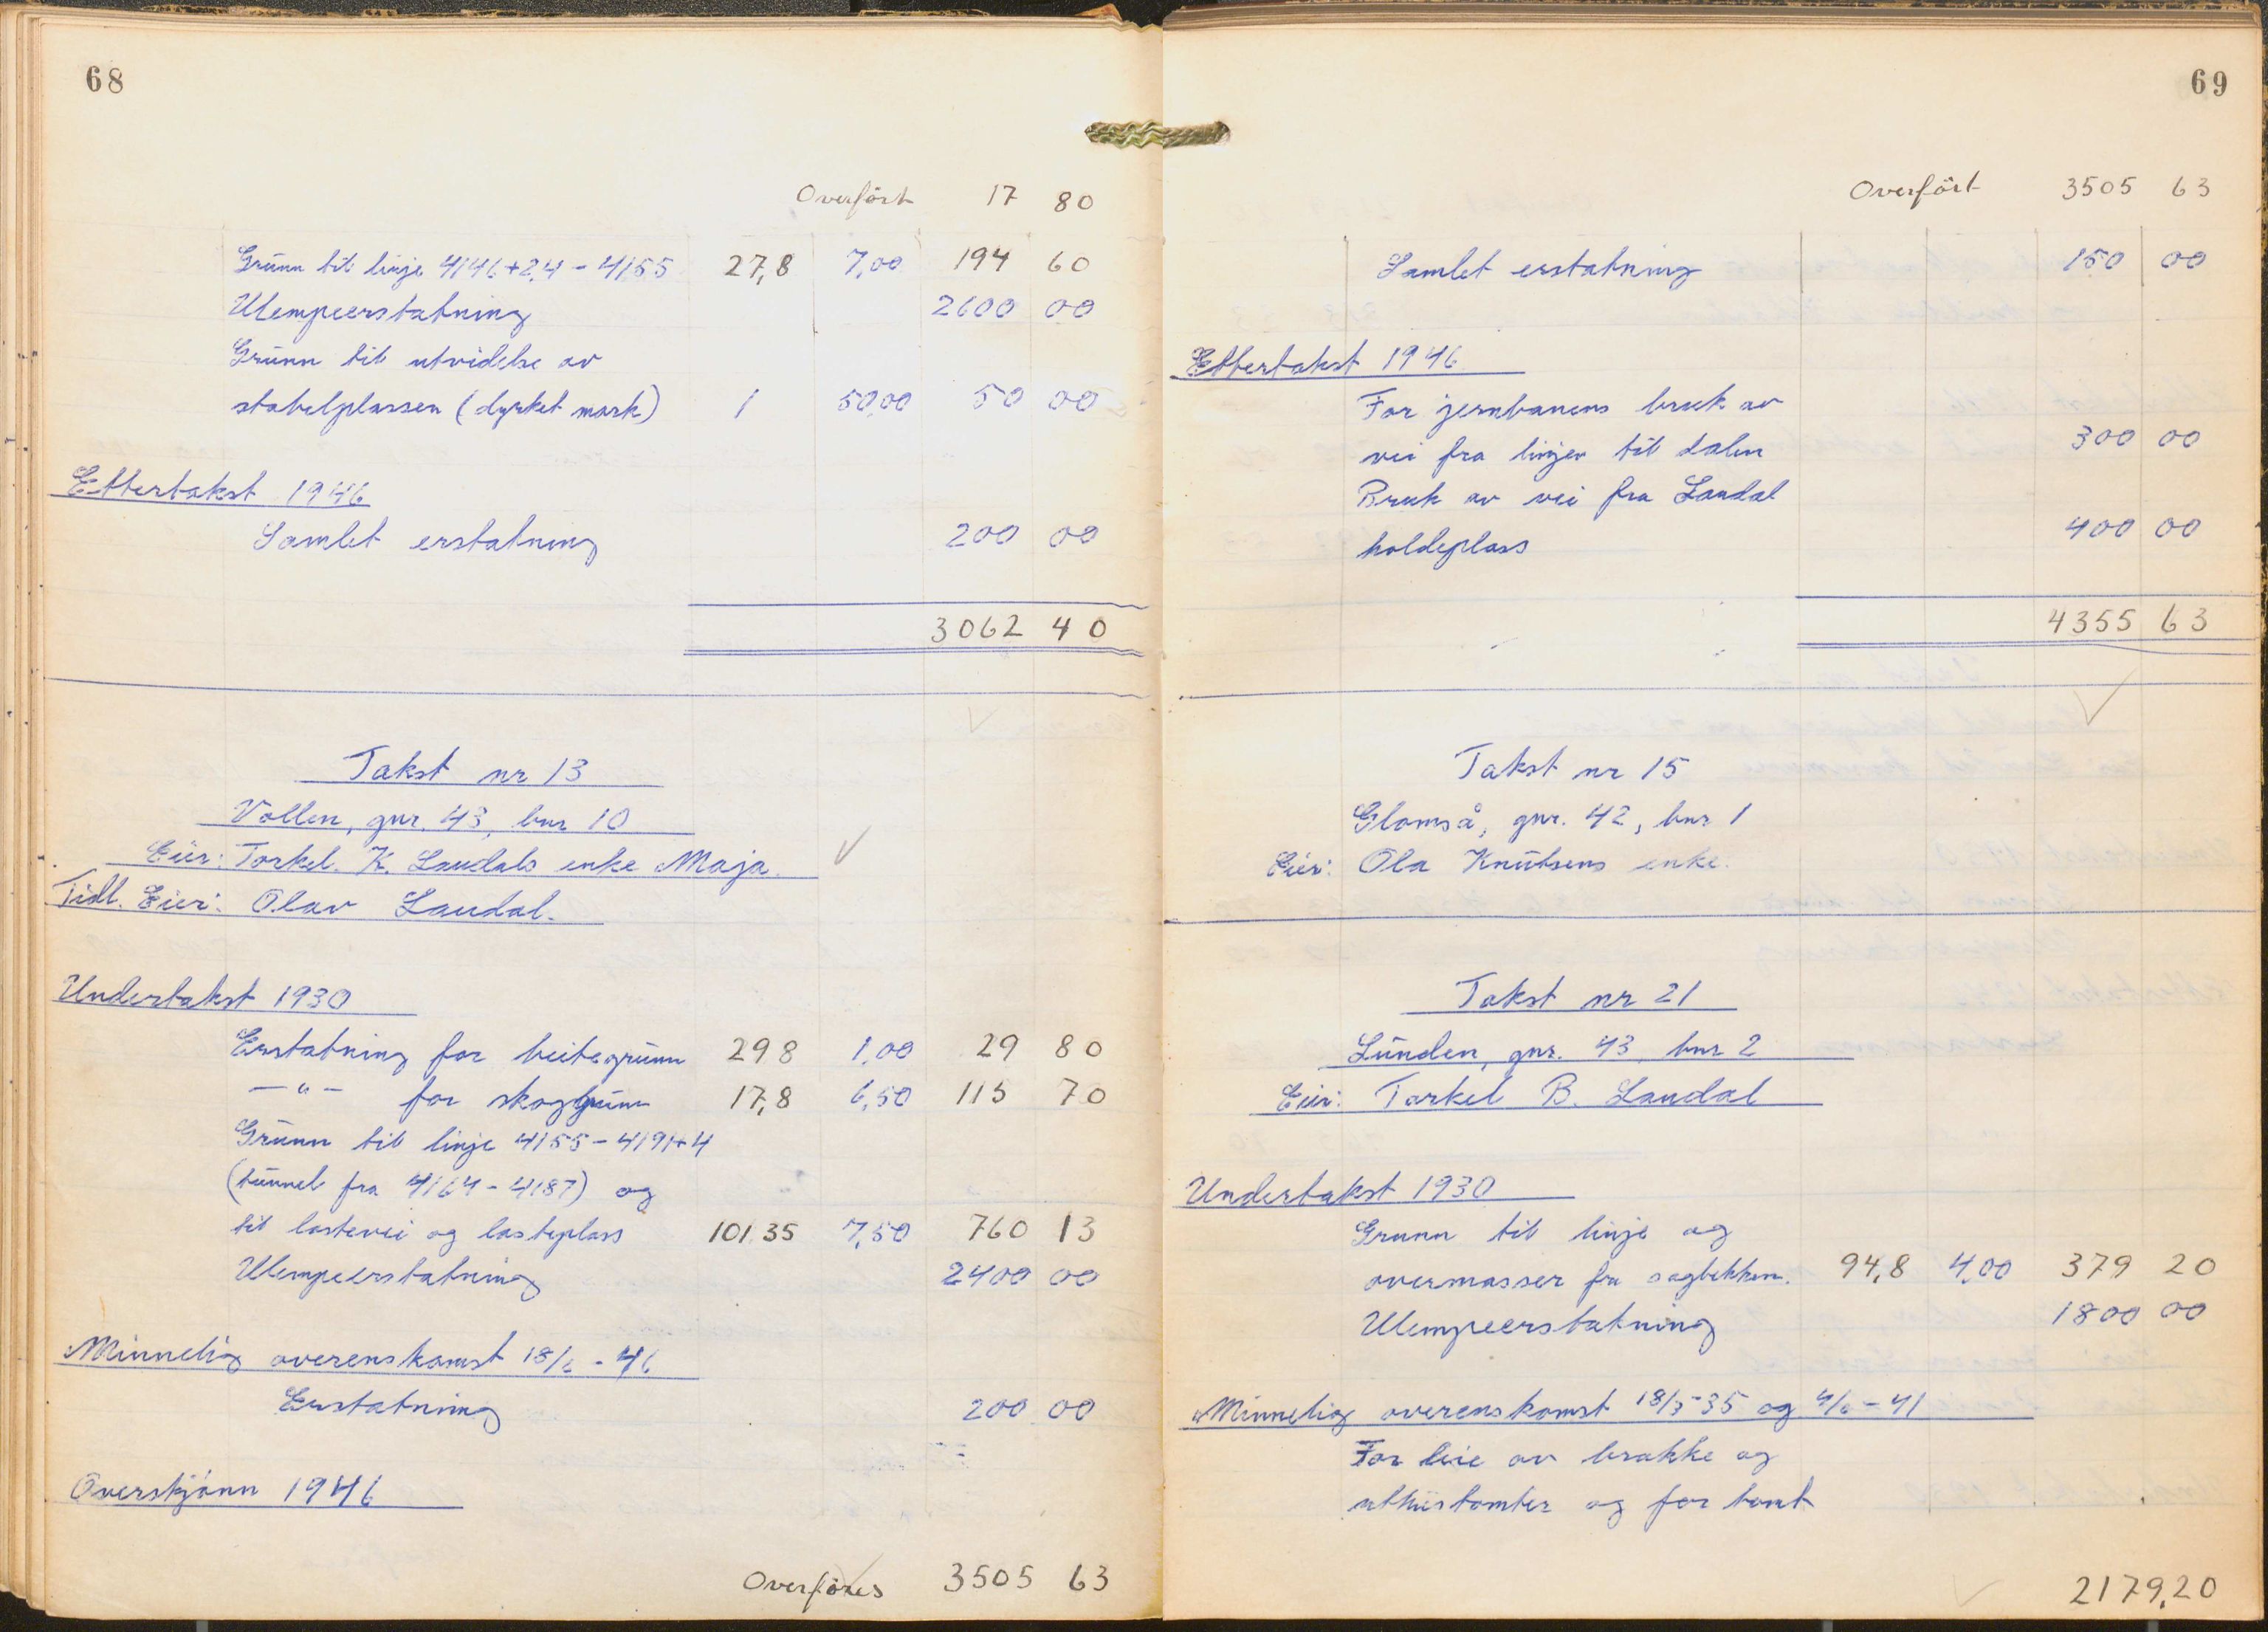 68
Overført 17 80
Grunn til linje 4146+2,4 - 4155 27,8 7,00 194 60
Ulempeerstatning 2600 00
Grunn til utvidelse av
stabelplassen (dyrket mark) 1 50,00 50 00
Ettertakst 1946
Samlet erstatning 200 00
3062 40
Takst nr 13
Vollen, gnr. 43, bnr 10
Eier: Torkel. K. Laudals enke Maja.
Tidl. Eier: Olav Laudal.
Undertakst 1930
Erstatning for beitegrunn 298 1,00 29 80
— " — for skoggrunn 17,8 6,50 115 70
Grunn til linje 4155 - 4191+4
(tunnel fra 4164 - 4187) og
til lastevei og lasteplass 101.35 7,50 760 13
Ulempeerstatning 2400 00
Minnelig overenskomst 18/6 - 46
Erstatning 200 00
Overskjønn 1946
Overføres 3505 63
69
Overført 3505 63
Samlet erstatning 150 00
Ettertakst 1946
For jernbanens bruk av
vei fra linjen til dalen 300 00
Bruk av vei fra Laudal
holdeplass 400 00
4355 63
Takst nr 15
Glomså, gnr. 42, bnr 1
Eier: Ola Knutsens enke.
Takst nr 21
Lunden, gnr. 43, bnr 2
Eier: Torkel B. Laudal
Undertakst 1930
Grunn til linje og
overmasser fra sagbekken. 94,8 4,00 379 20
Ulempeerstatning 1800 00
Minnelig overenskomst 18/3-35 og 4/6 - 41
For leie av brakke og
uthustomter og for tomt
2179,20